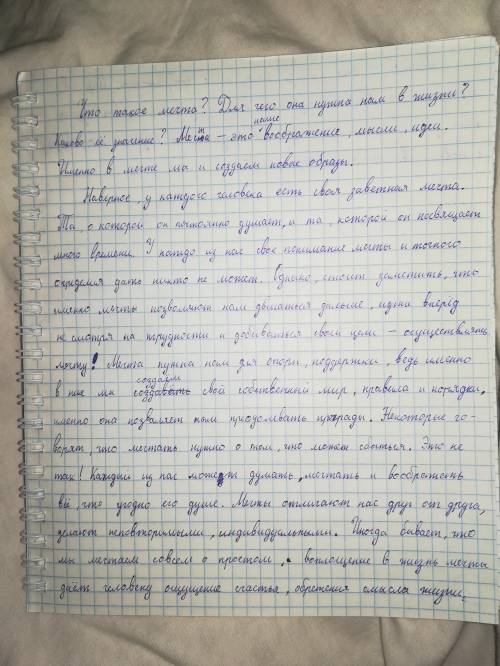 Что такое мечта? Для чего она нужна нам в жизни?
Каково её значение? Мечта – это наше воображение, мысли, идеи.
Именно в мечте мы и создаем новые образы.
Наверное, у каждого человека есть своя заветная мечта.
Та, о которой он постоянно думает, и та, которой он посвящает
много времени. У каждо из нас свое понимание мечты и точного
опредемя дать никто не может. Однако, стоит заметить, что
именно мечты позволяют нам двигаться дальше, идти вперёд
не смотря на трудности и добиваться своей цели – осуществлять
мечту! Мечта нужна нам для опоры, поддержки, ведь именно
в ней мы создаем свой собственный мир, правила и порядки,
именно она позваляет нам приодолевать преграды. Некоторые го-
ворят, что мечтать нужно о том, что может сбыться. Это не
так! Каждый из нас может думать, мечтать и воображать
всё, что угодно его душе. Мечты отличают нас друг от друга,
делают неповторимыми, индивидуальными. Иногда бывает, что
мы мечтаем совсем о простом, воплощение в жизнь мечты
даёт человеку ощущение счастья, обретения смысла жизни.